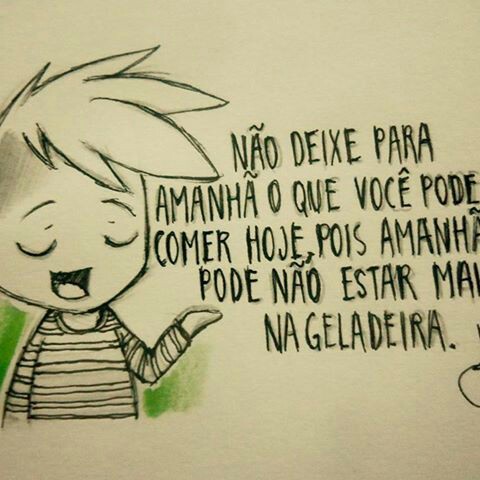 NÃO DEIXE PARA
AMANHÃ O QUE VOCÊ PODE
COMER HOJE, POIS AMANHÃ
PODE NÃO ESTAR MAI
NA GELADEIRA.